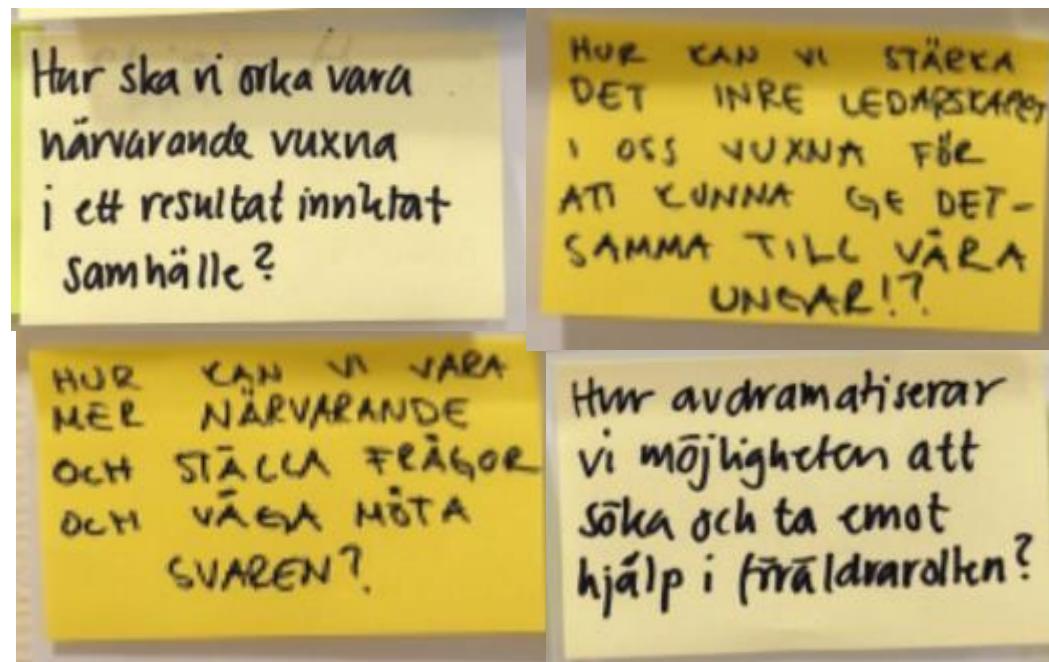 Hur ska vi orka vara
närvarande vuxna
i ett resultat inriktat
samhälle?
HUR KAN VI STÄRKA
DET INRE LEDARSKAPET
I OSS VUXNA FÖR
ATT KUNNA GE DET-
SAMMA TILL VÅRA
UNGAR!?
HUR KAN VI VARA
MER NÄRVARANDE
OCH STÄLLA FRÅGOR
OCH VÅGA MÖTA
SVAREN?
Hur avdramatiserar
vi möjligheten att
söka och ta emot
hjälp i föräldrarollen?